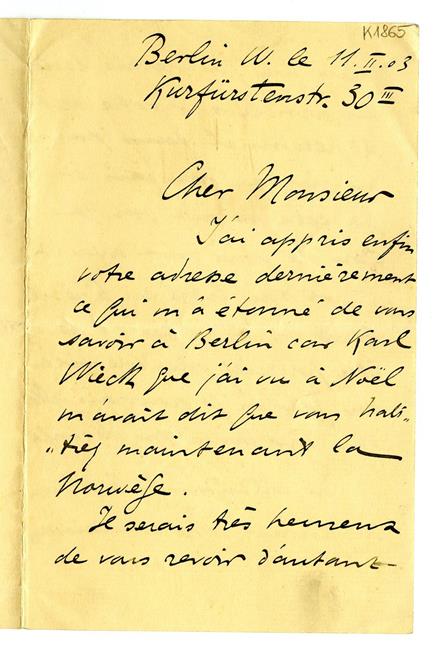 K1865
Berlin W. le 11.II.03
Kurfürstenstr. 30 III
Cher Monsieur
J'ai appris enfin
votre adresse dernièrement
ce qui m'a étonné de vous
savoir à Berlin car Karl
Wieck que j'ai vu à Noël
m'avait dit que vous habi-
"tiez maintenant la
Norwège.
Je serais très heureux
de vous revoir d'autant